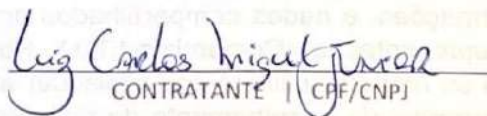 Luiz Carlos Miguel JUNIOR
CONTRATANTE | CPF/CNPJ